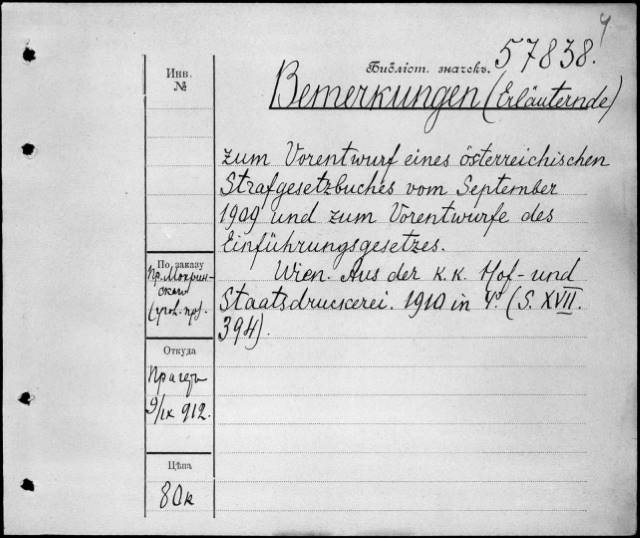 Библіот. значекъ. 57838.
Bemerkungen (Erläuternde)
zum Vorentwurf eines österreichischen
Strafgesetzbuches vom September
1909 und zum Vorentwurfe des
Einführungsgesetzes.
Wien. Aus der K. K. Hof- und
Staatsdruckerei. 1910 in 4º. (S. XVII.
394).
Инв.
№
По заказу
Пр. Мокрин-
скаго
(угол. пр).
Откуда
Прагеръ
9/IX 912.
Цѣна
80к